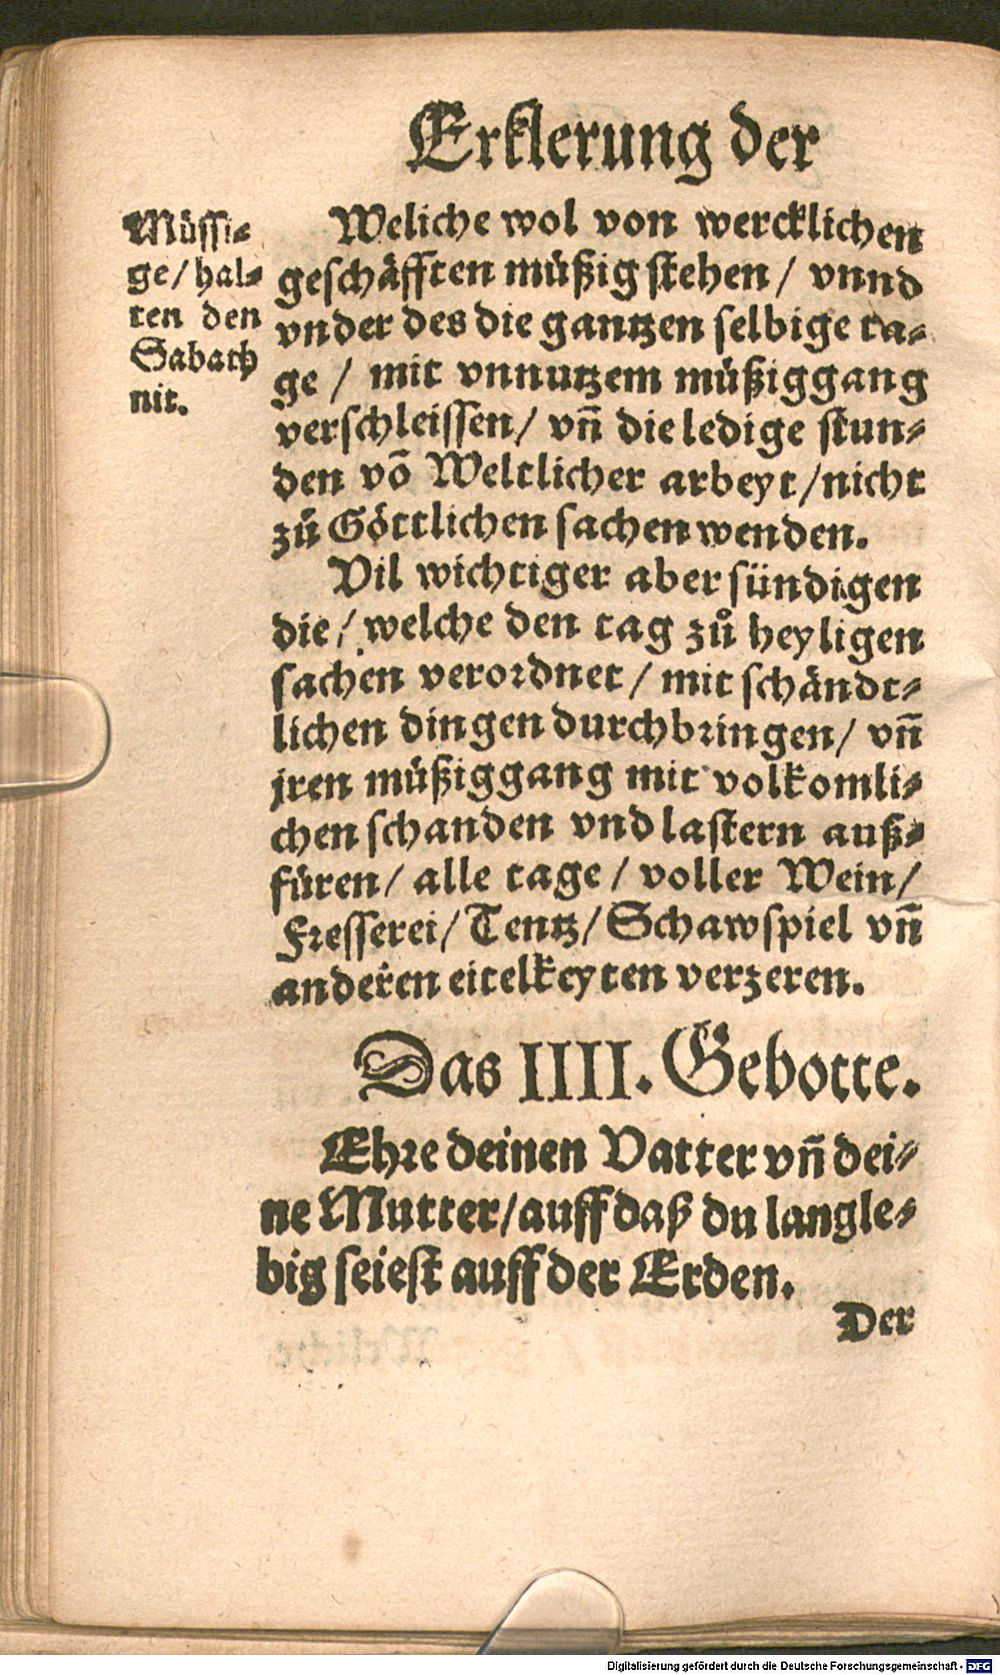 Erklerung der
Müssi-
ge/ hal-
ten den
Sabath
nit.
Weliche wol von wercklichen
geschäfften müßig stehen / vnnd
vnder des die gantzen selbige ta-
ge / mit vnnutzem müßiggang
verschleissen/ vñ die ledige stun-
den võ Weltlicher arbeyt/nicht
zů Göttlichen sachen wenden.
Vil wichtiger aber sündigen
die/ welche den tag zů heyligen
sachen verordnet / mit schändt-
lichen dingen durchbringen/ vñ
jren müßiggang mit volkomli-
chen schanden vnd lastern auß-
füren/ alle tage / voller Wein/
Fresserei/ Tentz/ Schawspiel vñ
anderen eitelkeyten verzeren.
Das IIII. Gebotte.
Ehre deinen Vatter vñ dei-
ne Mutter/auff daß du langle-
big seiest auff der Erden.
Der
Digitalisierung gefördert durch die Deutsche Forschungsgemeinschaft - DFG